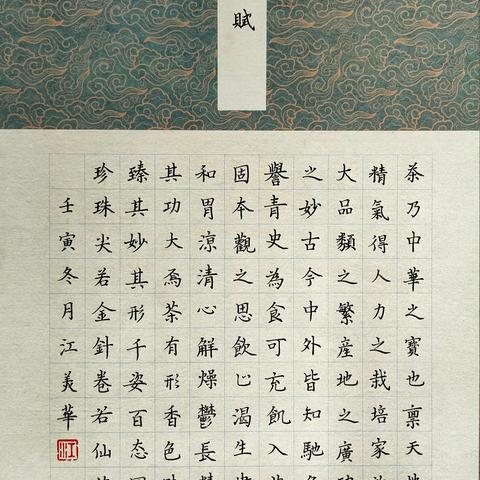 賦
茶乃中華之寶也稟天
精氣得人力之栽培家
大品類之繁産地之廣
之妙古今中外皆知馳
譽青史為食可充飢入
固本觀之思飲止渴生
和胃涼清心解燥鬱長
其功大焉茶有形香色
臻其妙其形千姿百态
珍珠尖若金針卷若仙
壬寅冬月江美華